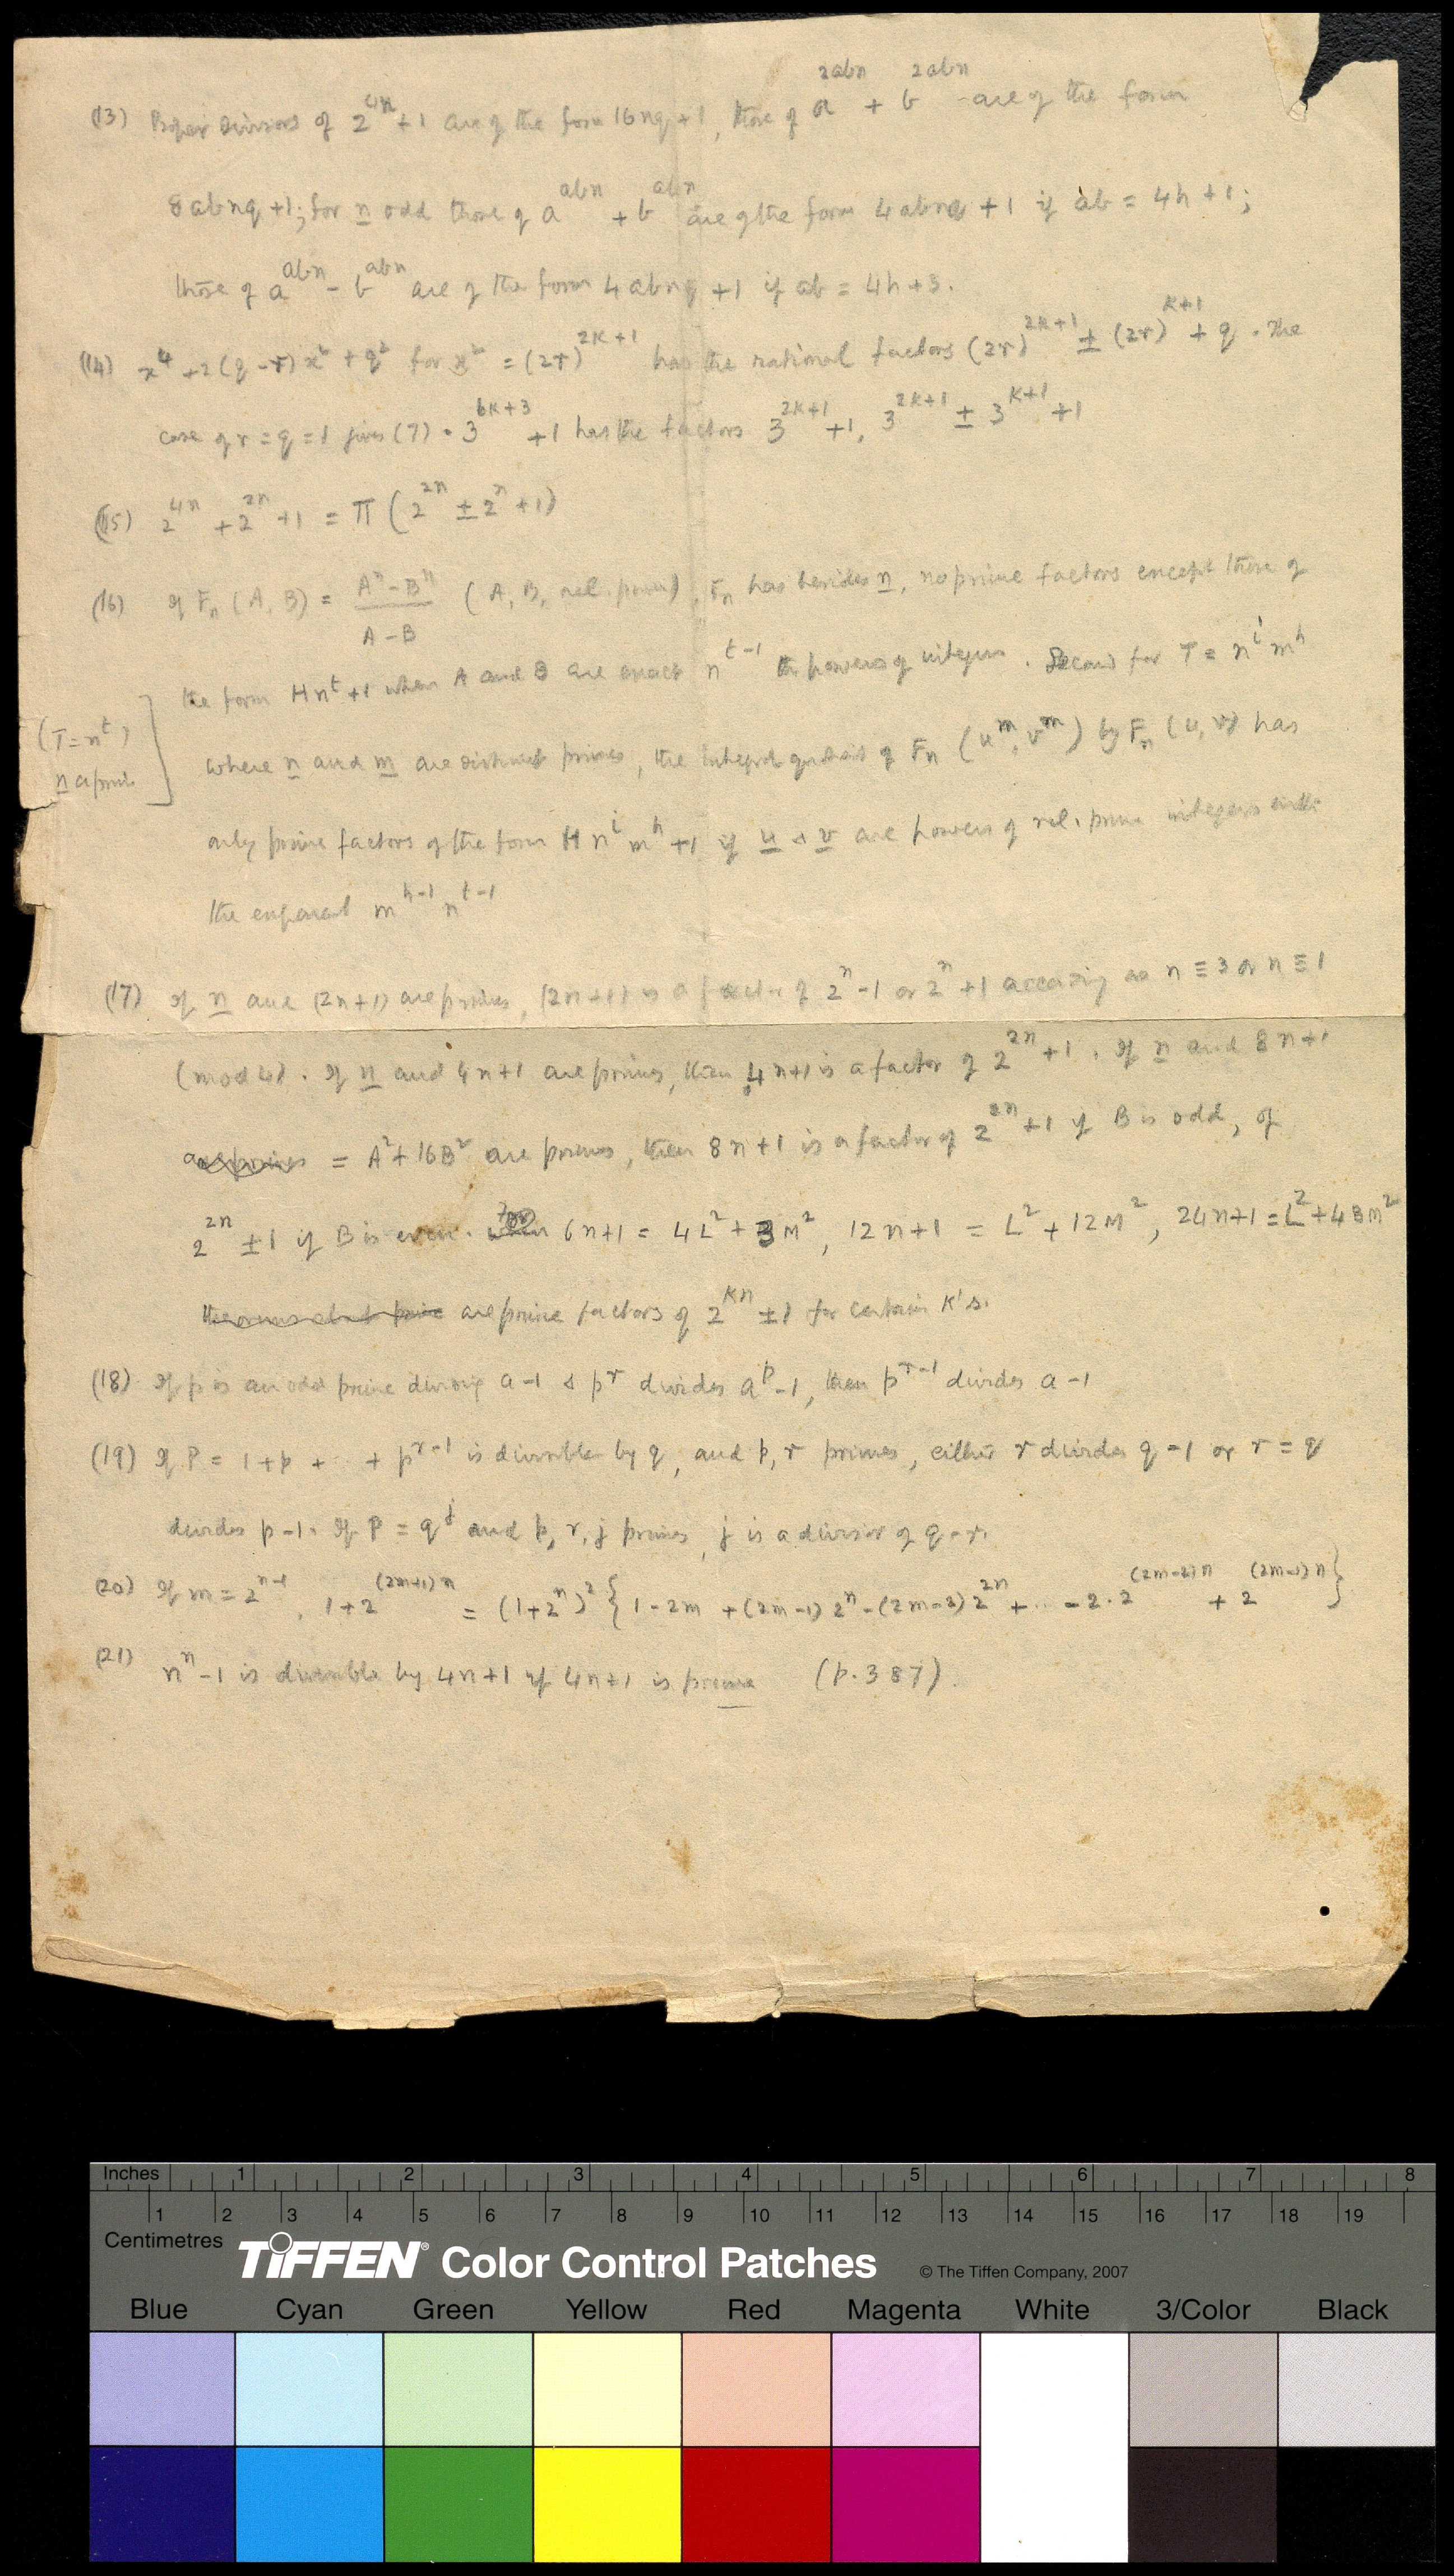 (13) Proper divisors of 2^{4n} + 1 are of the form 16nq + 1, those of a^{2abn} + b^{2abn} are of the form
8abnq + 1; for n odd those of a^{abn} + b^{abn} are of the form 4abnq + 1 if ab = 4h + 1;
those of a^{abn} - b^{abn} are of the form 4abnq + 1 if ab = 4h + 3.
(14) x^4 + 2(q - r)x^2 + q^2 for x^2 = (2r)^{2k+1} has the rational factors (2r)^{2k+1} ± (2r)^{k+1} + q. The
case q r = q = 1 gives (7). 3^{6k+3} + 1 has the factors 3^{2k+1} + 1, 3^{2k+1} ± 3^{k+1} + 1
(15) 2^{4n} + 2^{2n} + 1 = Π (2^{2n} ± 2^n + 1)
(16) If F_n (A, B) = (A^n - B^n)/(A - B) (A, B, rel. prime), F_n has besides n, no prime factors except those of
the form Hn^t + 1 when A and B are exact n^{t-1} th powers of integers. Second for T = n^i m^h
(T = n^t)
n a prime
where n and m are distinct primes, the integral quotient of F_n (u^m, v^m) by F_n (u, v) has
only prime factors of the form H n^i m^h + 1 if u & v are powers of rel. prime integers with
the exponent m^{h-1} n^{t-1}
(17) If n and (2n+1) are primes, (2n+1) is a factor of 2^n - 1 or 2^n + 1 according as n ≡ 3 or n ≡ 1
(mod 4). If n and 4n+1 are primes, then 4n+1 is a factor of 2^{2n} + 1. If n and 8n+1
are primes = A^2 + 16B^2 are primes, then 8n+1 is a factor of 2^{2n} + 1 if B is odd, of
2^{2n} ± 1 if B is even. 6n+1 = 4L^2 + 3M^2, 12n+1 = L^2 + 12M^2, 24n+1 = L^2 + 48M^2
are prime factors of 2^{kn} ± 1 for certain k's.
(18) If p is an odd prime dividing a-1 & p^r divides a^p - 1, then p^{r-1} divides a-1
(19) If P = 1 + p + ... + p^{r-1} is divisible by q, and p, r primes, either r divides q-1 or r = q
divides p-1. If P = q^j and p, r, j primes, j is a divisor of q-r.
(20) If m = 2^{n-1}, 1 + 2^{(2m+1)n} = (1+2^n)^2 {1 - 2m + (2m-1)2^n - (2m-2)2^{2n} + ... - 2·2^{(2m-2)n} + 2^{(2m-1)n}}
(21) n^n - 1 is divisible by 4n+1 if 4n+1 is prime (p. 387).
Inches 1 2 3 4 5 6 7 8
1 2 3 4 5 6 7 8 9 10 11 12 13 14 15 16 17 18 19
Centimetres
TIFFEN® Color Control Patches © The Tiffen Company, 2007
Blue Cyan Green Yellow Red Magenta White 3/Color Black